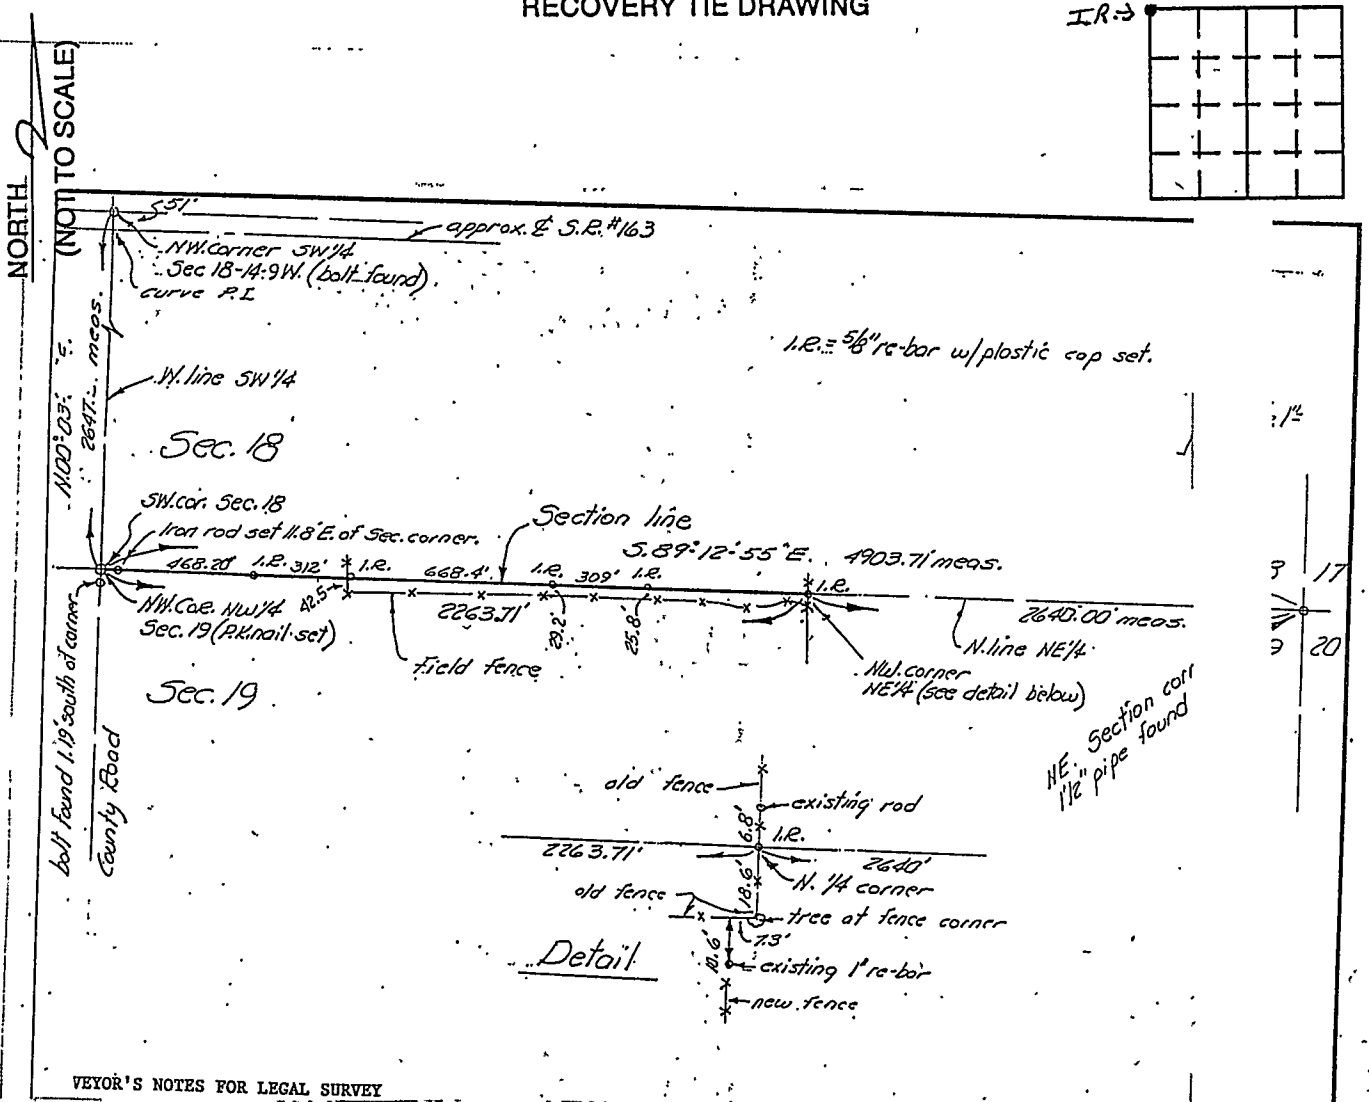 RECOVERY TIE DRAWING
I.R.
NORTH
(NOT TO SCALE)
51'
approx. ℄ S.R. #163
N.W. corner SW 1/4
Sec 18-14-9W. (bolt found)
curve P.I.
I.R. = 5/8" re-bar w/plastic cap set.
W. line SW 1/4
2647. meas.
N.00°03' E.
Sec. 18
1"
SW. cor. Sec. 18
Iron rod set 11.8' E. of Sec. corner.
Section line
S. 89°-12'-55" E. 4903.71' meas.
468.20' I.R. 312' I.R. 668.4' I.R. 309' I.R. I.R.
17
42.5
2263.71'
29.2'
25.8'
2640.00' meas.
N.W. Cor. NW 1/4
Sec. 19 (P.K. nail set)
Field fence
N. line NE 1/4
20
N.W. corner
NE 1/4 (see detail below)
Sec. 19
bolt found 1.19' south of corner
County Road
NE. Section corr
1 1/2" pipe found
old fence
existing rod
6.8'
I.R.
2263.71'
2640'
N. 1/4 corner
18.6'
old fence
tree at fence corner
7.3'
10.6'
Detail
existing 1" re-bar
new fence
VEYOR'S NOTES FOR LEGAL SURVEY